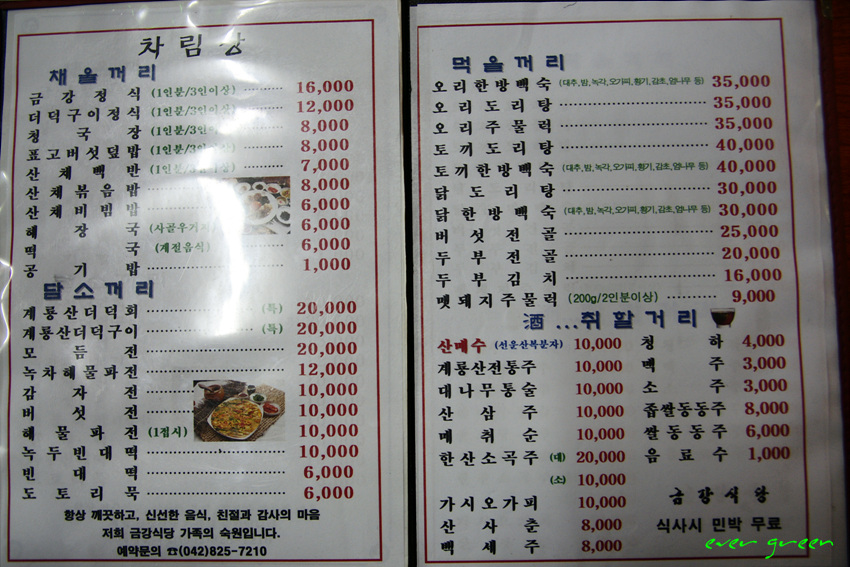 차림상
채울꺼리
금강정식 (1인분/3인이상) 16,000
더덕구이정식 (1인분/3인이상) 12,000
청국장 (1인분/3인이상) 8,000
표고버섯덮밥 (1인분/3인이상) 8,000
산채백반 (1인분/3인이상) 7,000
산채볶음밥 8,000
산채비빔밥 6,000
해장국 (사골우거지) 6,000
떡국 (계절음식) 6,000
공기밥 1,000
담소꺼리
계룡산더덕회 (특) 20,000
계룡산더덕구이 (특) 20,000
모듬전 20,000
녹차해물파전 12,000
감자전 10,000
버섯전 10,000
해물파전 (1접시) 10,000
녹두빈대떡 10,000
빈대떡 6,000
도토리묵 6,000
항상 깨끗하고, 신선한 음식, 친절과 감사의 마음
저희 금강식당 가족의 숙원입니다.
예약문의 ☎(042)825-7210
먹을꺼리
오리한방백숙 (대추,밤,녹각,오가피,황기,감초,엄나무 등) 35,000
오리도리탕 35,000
오리주물럭 35,000
토끼도리탕 40,000
토끼한방백숙 (대추,밤,녹각,오가피,황기,감초,엄나무 등) 40,000
닭도리탕 30,000
닭한방백숙 (대추,밤,녹각,오가피,황기,감초,엄나무 등) 30,000
버섯전골 25,000
두부전골 20,000
두부김치 16,000
멧돼지주물럭 (200g/2인분이상) 9,000
酒...취할거리
산매수 (선운산복분자) 10,000 청하 4,000
계룡산전통주 10,000 맥주 3,000
대나무통술 10,000 소주 3,000
산삼주 10,000 좁쌀동동주 8,000
매취순 10,000 쌀동동주 6,000
한산소곡주 (대) 20,000 음료수 1,000
(소) 10,000
가시오가피 10,000
산사춘 8,000
백세주 8,000
금강식당
식사시 민박 무료
ever green